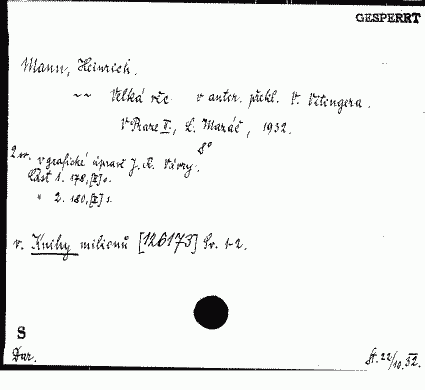 GESPERRT
Mann, Heinrich.
~~ Velká věc v autor. překl. V. Vitengera.
V Praze II., L. Mazáč, 1932.
8°
2 sv. v grafické úpravě J. R. Vávry.
Část 1. 178, [I] s.
" 2. 180, [I] s.
v. Knihy milionů [126173] Sv. 1-2.
S
Dar. St. 22/10.32.